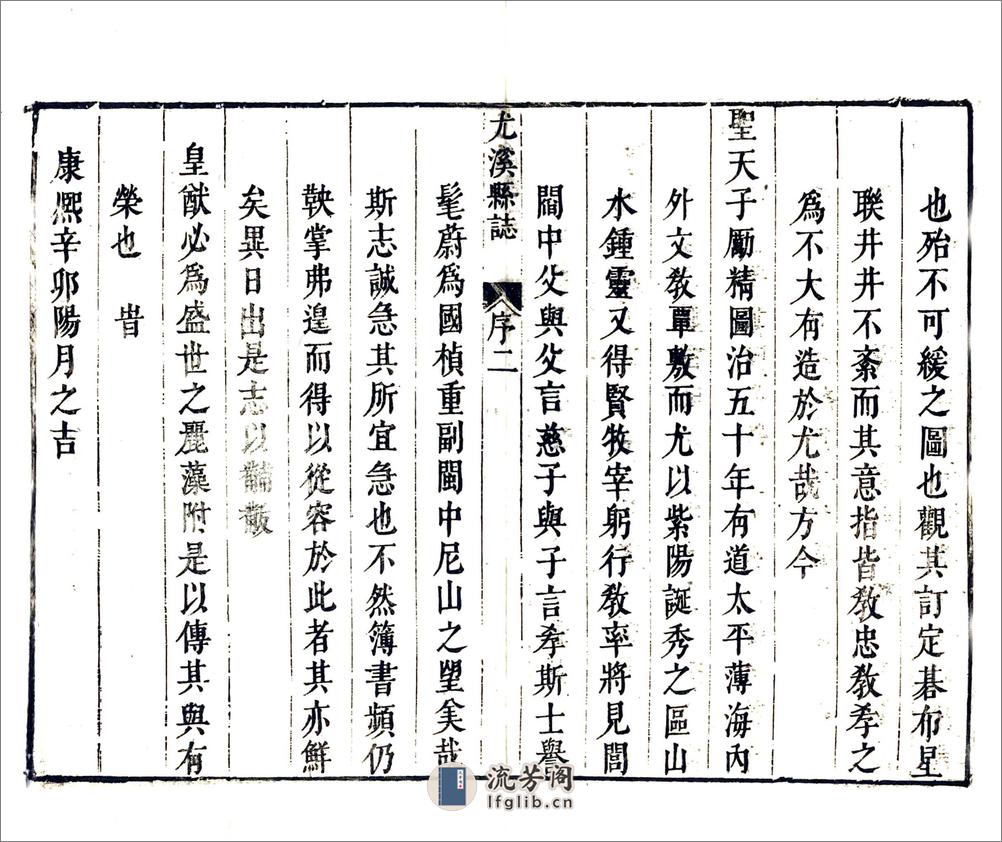 也殆不可緩之圖也觀其訂定碁布星
聯井井不紊而其意指皆敎忠敎孝之
爲不大有造於尤哉方今
聖天子勵精圖治五十年有道太平薄海內
外文敎單敷而尤以紫陽誕秀之區山
水鍾靈又得賢牧宰躬行敎率將見閭
閻中父與父言慈子與子言孝斯士譽
尤溪縣誌
序二
髦蔚爲國楨重副閩中尼山之望矣哉
斯志誠急其所宜急也不然簿書頻仍
鞅掌弗遑而得以從容於此者其亦鮮
矣異日出是志以黼黻
皇猷必爲盛世之麗藻附是以傳其與有
榮也 旹
康熙辛卯陽月之吉
流芳阁
lfglib.cn